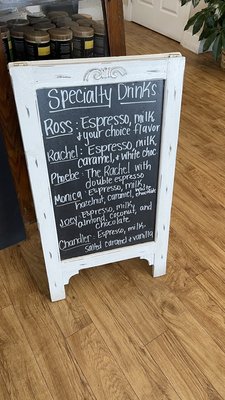 Specialty Drinks
Ross: Espresso, milk
& your choice flavor
Rachel: Espresso, milk
caramel, & white choc
Phoebe: The Rachel with
double espresso
Monica: Espresso, milk,
hazelnut, caramel, white chocolate
Joey: Espresso, milk,
almond, coconut, and
chocolate
Chandler: Espresso, milk,
salted caramel & vanilla